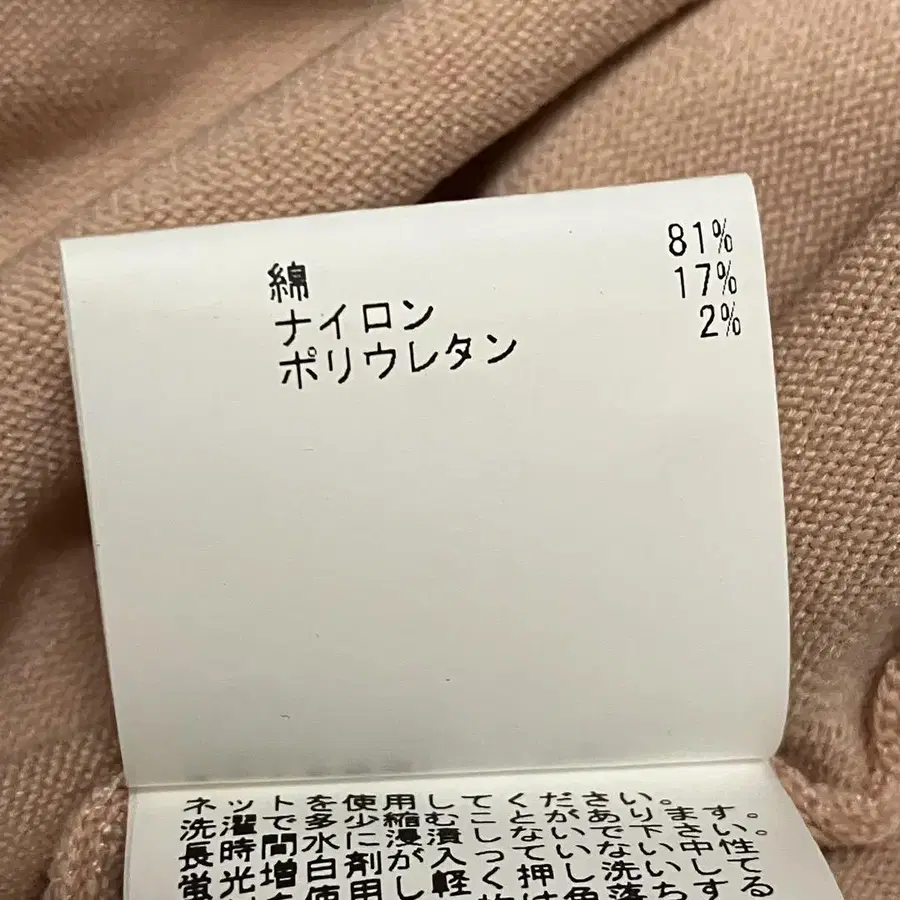 綿 81%
ナイロン 17%
ポリウレタン 2%
ネットを使用してください。
洗濯で多少縮むことがあります。
長時間水に浸漬しないで下さい。
蛍光増白剤が入っていない中性
使用し 軽く押し洗いして